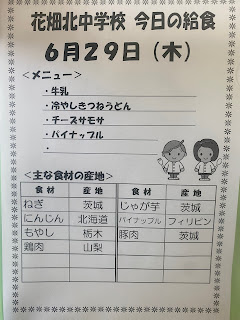 花畑北中学校 今日の給食
6月29日（木）
＜メニュー＞
・牛乳
・冷やしきつねうどん
・チーズサモサ
・パイナップル
・
＜主な食材の産地＞
食材 産地 食材 産地
ねぎ 茨城 じゃが芋 茨城
にんじん 北海道 パイナップル フィリピン
もやし 栃木 豚肉 茨城
鶏肉 山梨